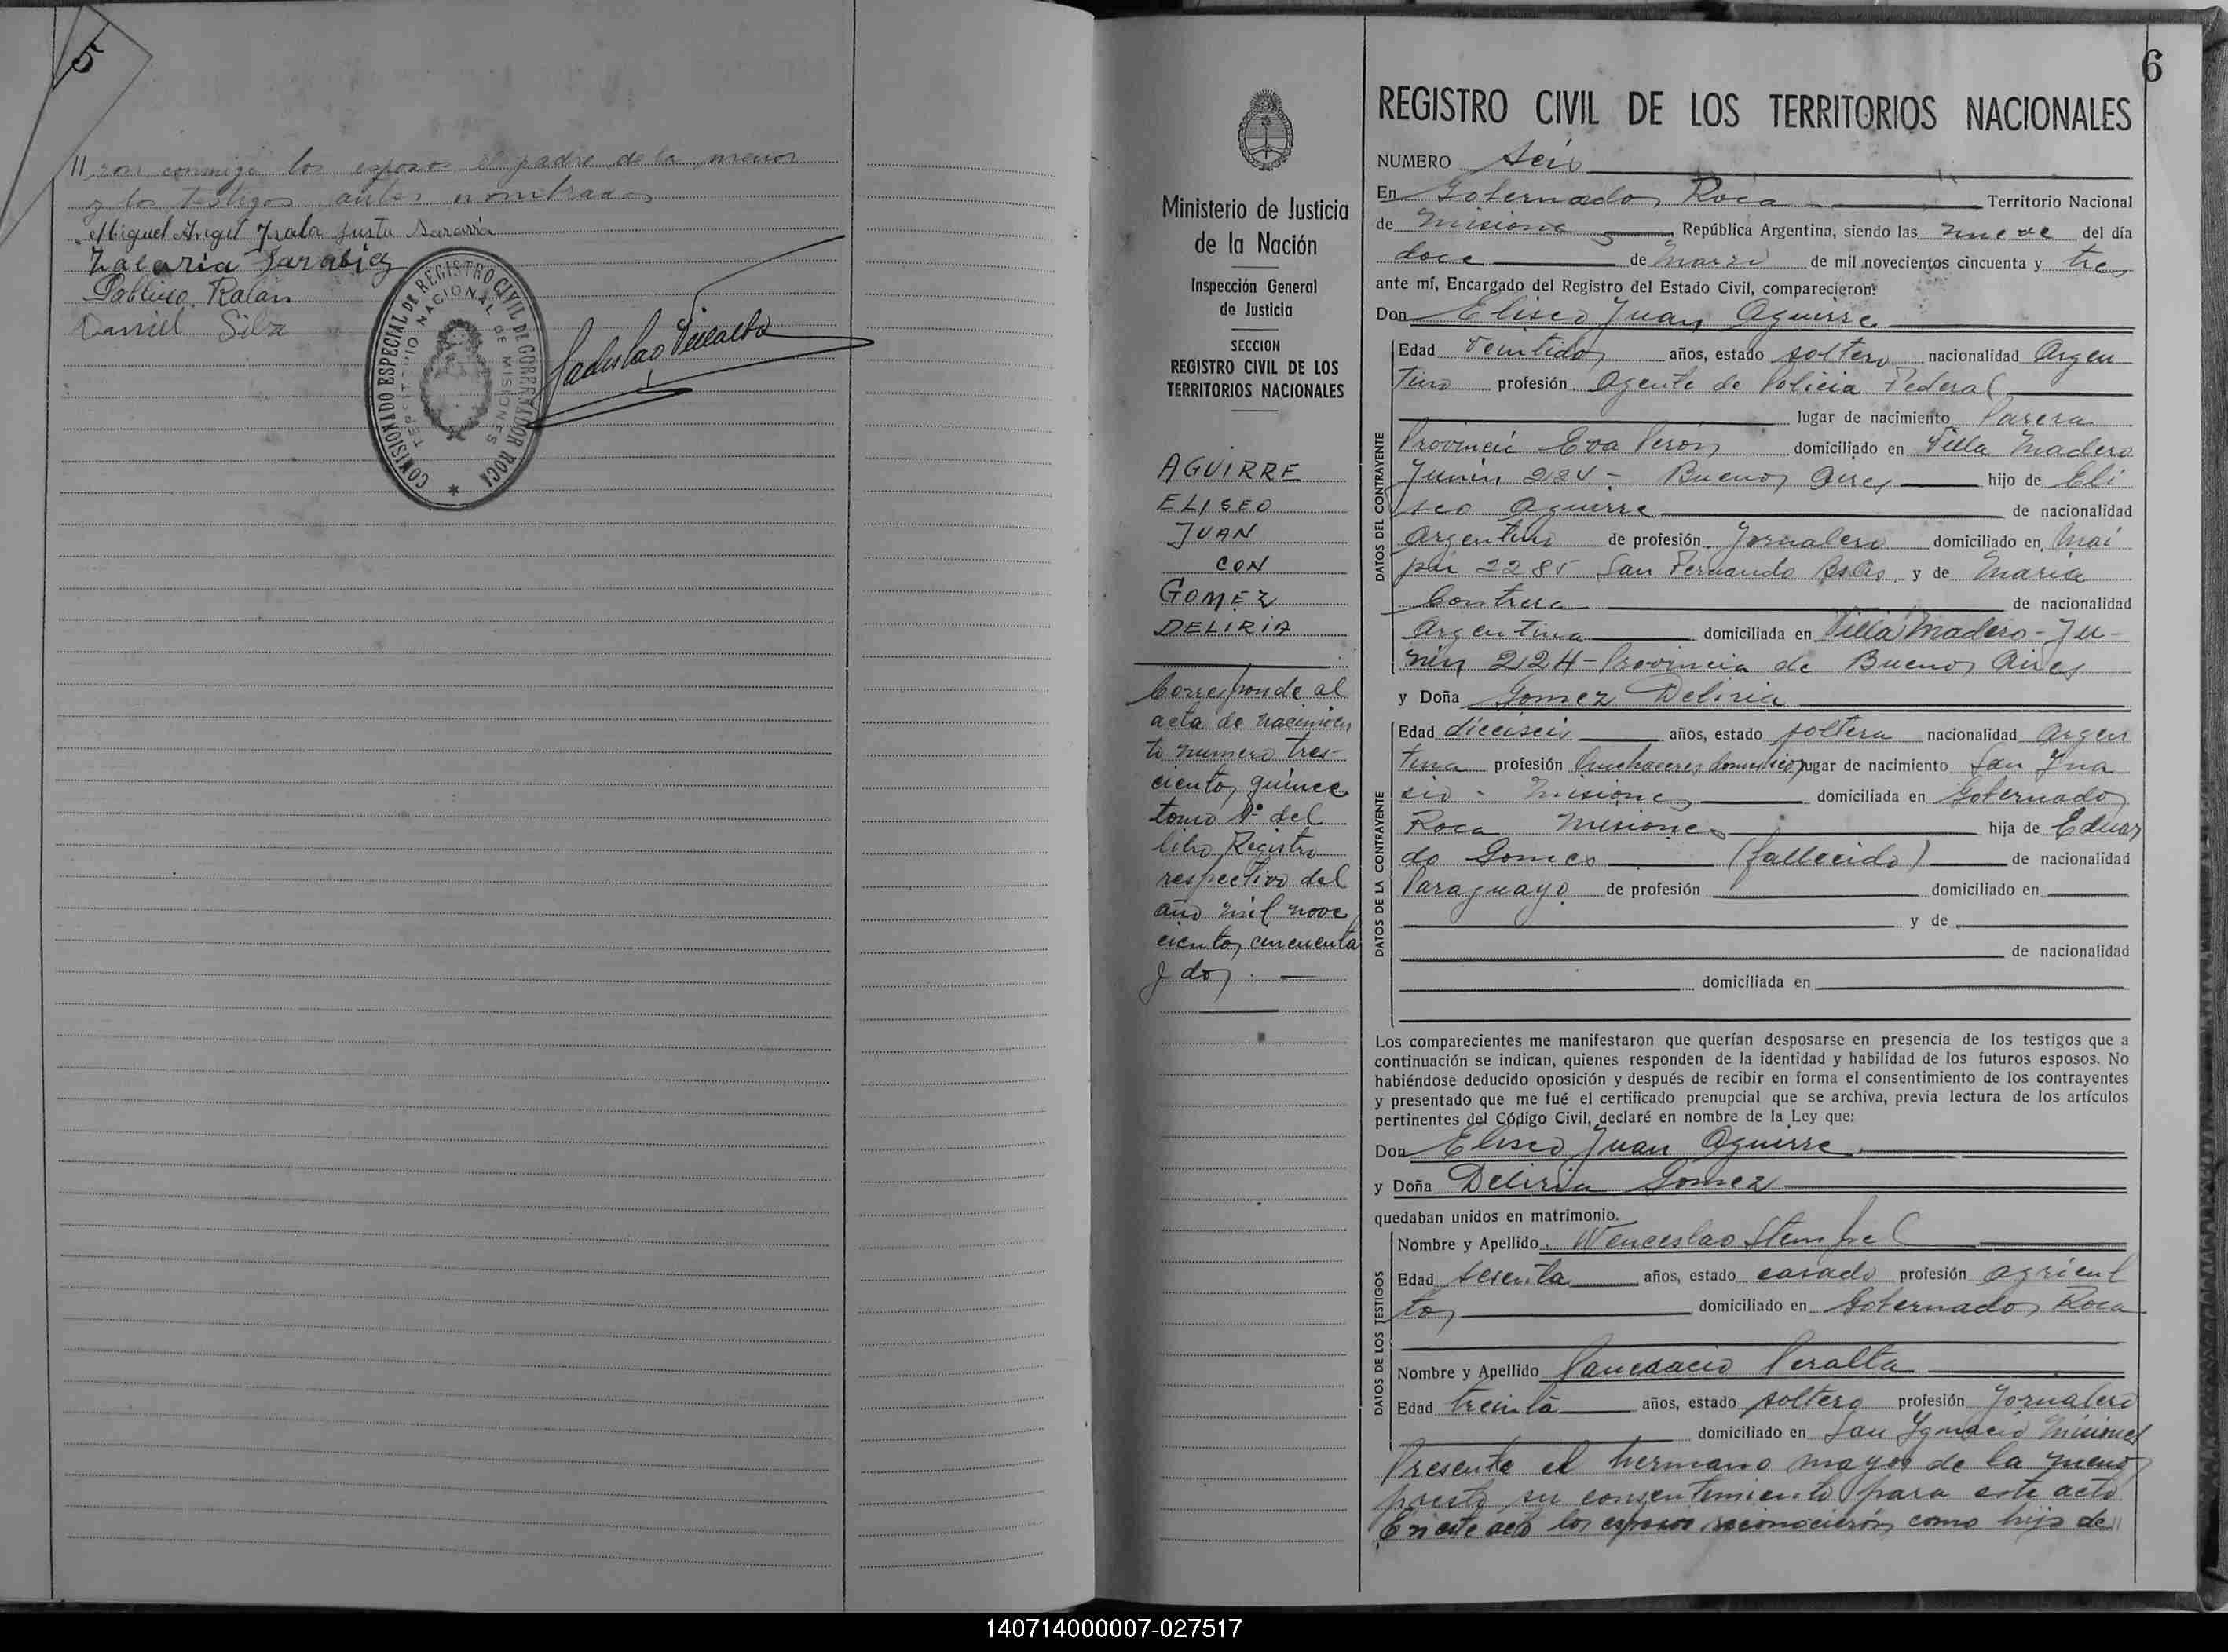 5
// ron conmigo los esposos el padre de la menor
y los testigos antes nombrados
Miguel Angel Justa Sanabria
Zacaria Sarabia
Daniel Silva
COMISIONADO ESPECIAL DE REGISTRO CIVIL DE GOBERNADOR ROCA
TERRITORIO NACIONAL DE MISIONES
Ladislao
6
Ministerio de Justicia
de la Nación
Inspección General
de Justicia
SECCION
REGISTRO CIVIL DE LOS
TERRITORIOS NACIONALES
AGUIRRE
ELISEO
JUAN
CON
GOMEZ
DELIRIA
Corresponde al
acta de nacimien
to numero tres-
cientos quince
tomo 1º del
libro Registro
respectivo del
año mil nove
cientos cincuenta
y dos . —
REGISTRO CIVIL DE LOS TERRITORIOS NACIONALES
NUMERO seis
En Gobernador Roca Territorio Nacional
de Misiones República Argentina, siendo las nueve del día
doce de Marzo de mil novecientos cincuenta y tres
ante mí, Encargado del Registro del Estado Civil, comparecieron:
Don Eliseo Juan Aguirre
DATOS DEL CONTRAYENTE
Edad veintidos años, estado soltero nacionalidad Argen
tino profesión Agente de Policia Federal
lugar de nacimiento Parera
Provincia Eva Perón domiciliado en Villa Madero
Junin 224 - Buenos Aires hijo de Eli
seo Aguirre de nacionalidad
Argentino de profesión Jornalero domiciliado en Mai
pu 2285 San Fernando Bs As y de Maria
Contrera de nacionalidad
Argentina domiciliada en Villa Madero - Ju-
nin 2124 - Provincia de Buenos Aires
y Doña Gomez Deliria
DATOS DE LA CONTRAYENTE
Edad dieciseis años, estado soltera nacionalidad Argen
tina profesión Quehaceres domesticos lugar de nacimiento San Ina
sio - Misiones domiciliada en Gobernador
Roca Misiones hija de Eduar
do Gomes (fallecido) de nacionalidad
Paraguayo de profesión domiciliado en
y de
de nacionalidad
domiciliada en
Los comparecientes me manifestaron que querían desposarse en presencia de los testigos que a
continuación se indican, quienes responden de la identidad y habilidad de los futuros esposos. No
habiéndose deducido oposición y después de recibir en forma el consentimiento de los contrayentes
y presentado que me fué el certificado prenupcial que se archiva, previa lectura de los artículos
pertinentes del Código Civil, declaré en nombre de la Ley que:
Don Eliseo Juan Aguirre
y Doña Deliria Gomez
quedaban unidos en matrimonio.
DATOS DE LOS TESTIGOS
Nombre y Apellido Wenceslao Stempel
Edad sesenta años, estado casado profesión agricul
tor domiciliado en Gobernador Roca
Nombre y Apellido Peralta
Edad treinta años, estado soltero profesión Jornalero
domiciliado en San Ygnacio Misiones
Presente el hermano mayor de la menor
presto su consentimiento para este acto
En este acto los esposos reconocieron como hijo de //
140714000007-027517